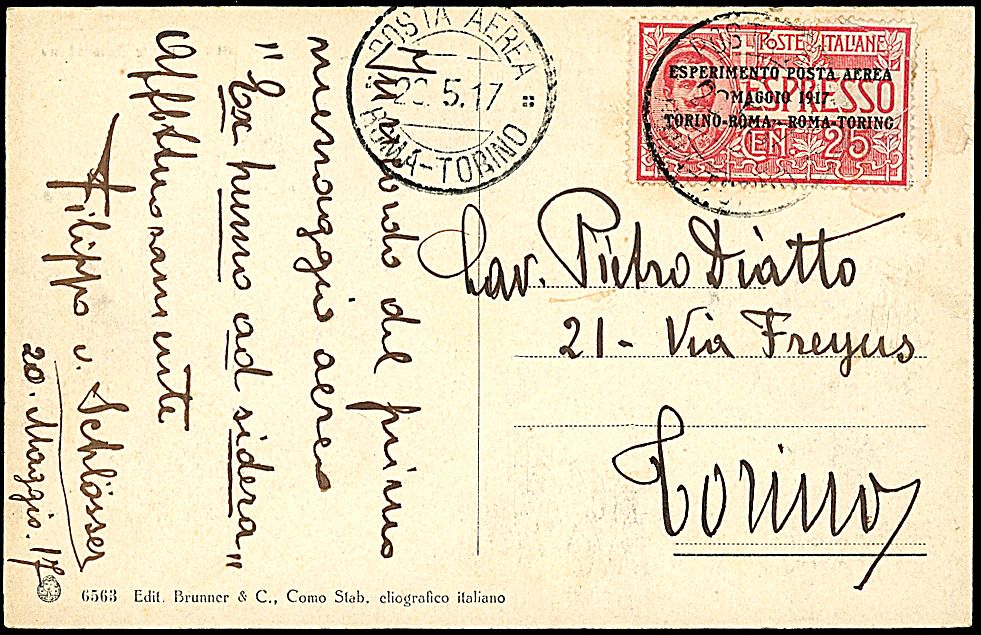 In ricordo del primo
messaggio aereo
"Ex humo ad sidera"
Affettuosamente
Filippo v. Schlösser
20. Maggio. 17
POSTA AEREA
5.17
ROMA-TORINO
POSTE ITALIANE
ESPRESSO
CEN. 25
ESPERIMENTO POSTA AEREA
MAGGIO 1917
TORINO-ROMA - ROMA-TORINO
Cav. Pietro Diatto
21 - Via Frejus
Torino
6563 Edit. Brunner & C., Como Stab. eliografico italiano